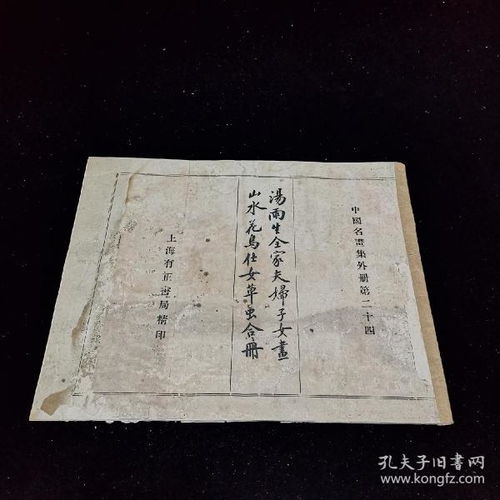 中國名畫集外冊第二十四
湯雨生全家夫婦子女畫
山水花鳥仕女草虫合冊
上海有正書局精印
孔夫子旧书网
www.kongfz.com